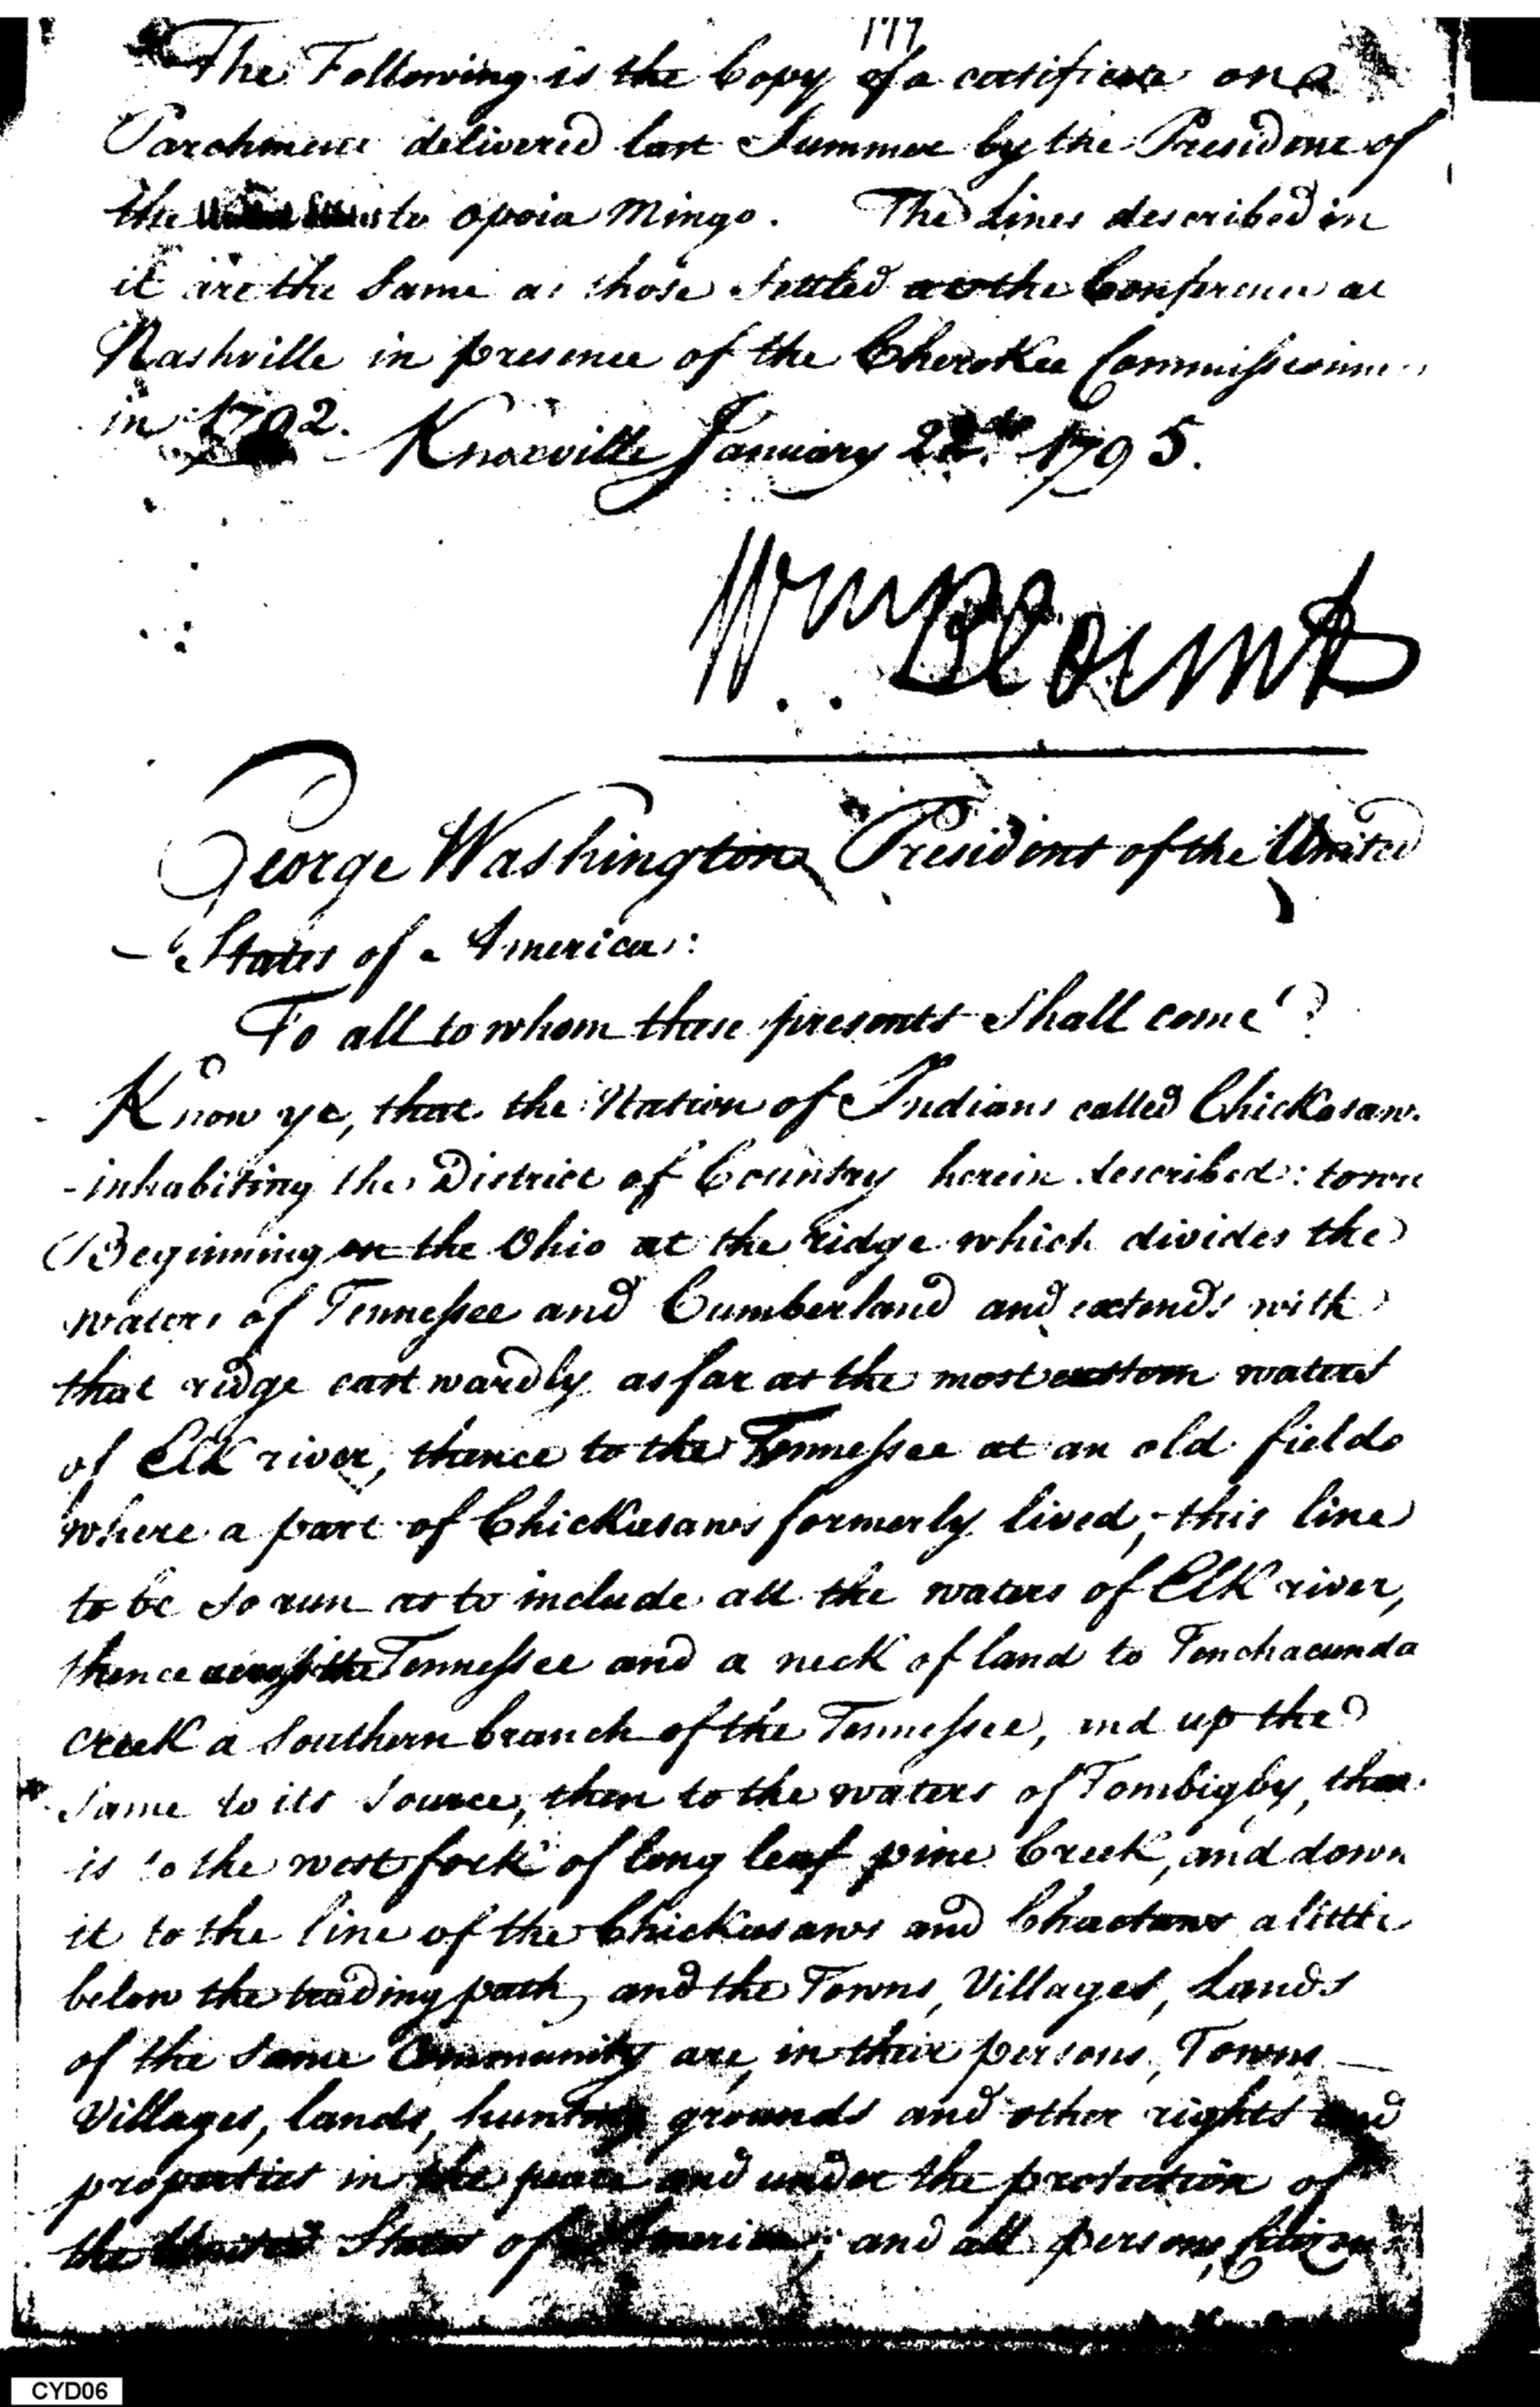 177
The Following is the Copy of a certificate on a
Parchment delivered last Summer by the President of
the United States to opoia Mingo. The Lines described in
it are the Same as those Settled at the Conference at
Nashville in presence of the Cherokee Commissioners
in 1792. Knoxville January 22d 1795.
Wm Blount
George Washington President of the United
States of America:
To all to whom these presents Shall come
Know ye, that the Nation of Indians called Chickasaws
inhabiting the District of Country herein described: towit
Beginning on the Ohio at the ridge which divides the
waters of Tennessee and Cumberland and extends with
that ridge eastwardly as far as the most eastern waters
of Elk river, thence to the Tennessee at an old field
where a part of Chickasaws formerly lived; this line
to be so run as to include all the waters of Elk river,
thence across the Tennessee and a neck of land to Tenchacunda
creek a Southern branch of the Tennessee, and up the
Same to its Source, then to the waters of Tombigby, that
is to the west fork of long leaf pine Creek, and down
it to the line of the Chickasaws and Choctaws a little
below the trading path, and the Towns, Villages, Lands
of the Same Community are, in their persons, Towns
Villages, lands, hunting grounds and other rights and
properties in the peace and under the protection of
the United States of America; and all persons, Citizens
CYD06